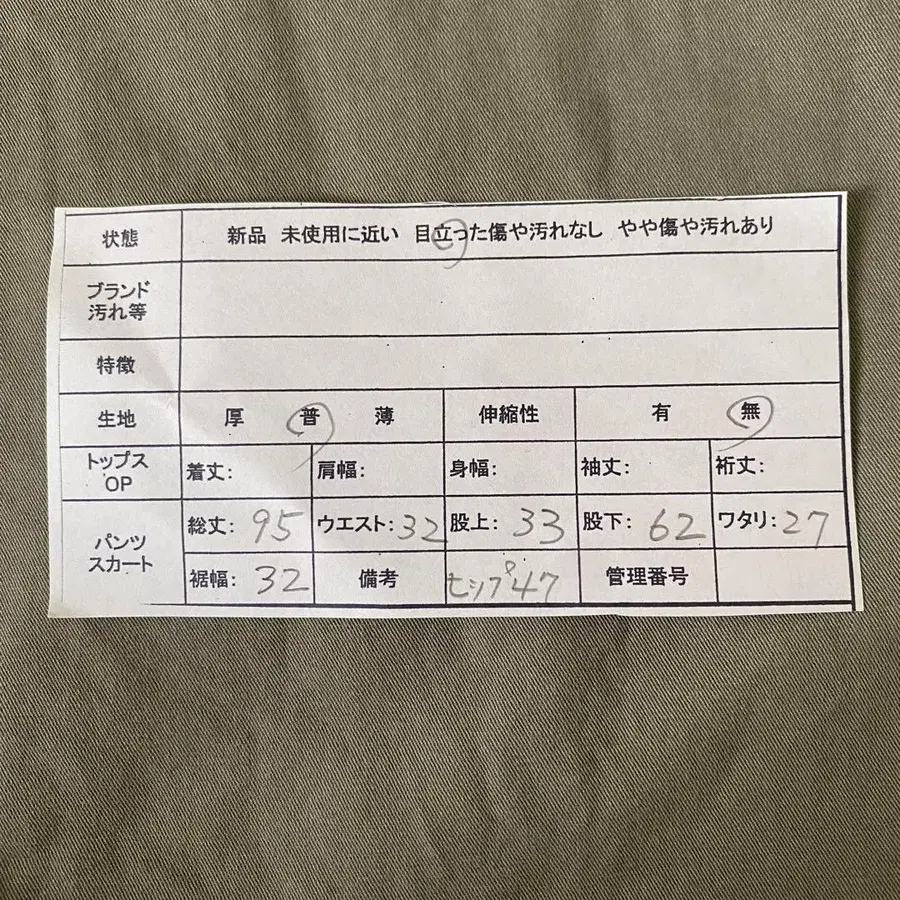 状態 新品 未使用に近い 目立った傷や汚れなし やや傷や汚れあり
ブランド
汚れ等
特徴
生地 厚 普 薄 伸縮性 有 無
トップス
OP
着丈: 肩幅: 身幅: 袖丈: 裄丈:
パンツ
スカート
総丈: 95 ウエスト: 32 股上: 33 股下: 62 ワタリ: 27
裾幅: 32 備考 ヒップ47 管理番号